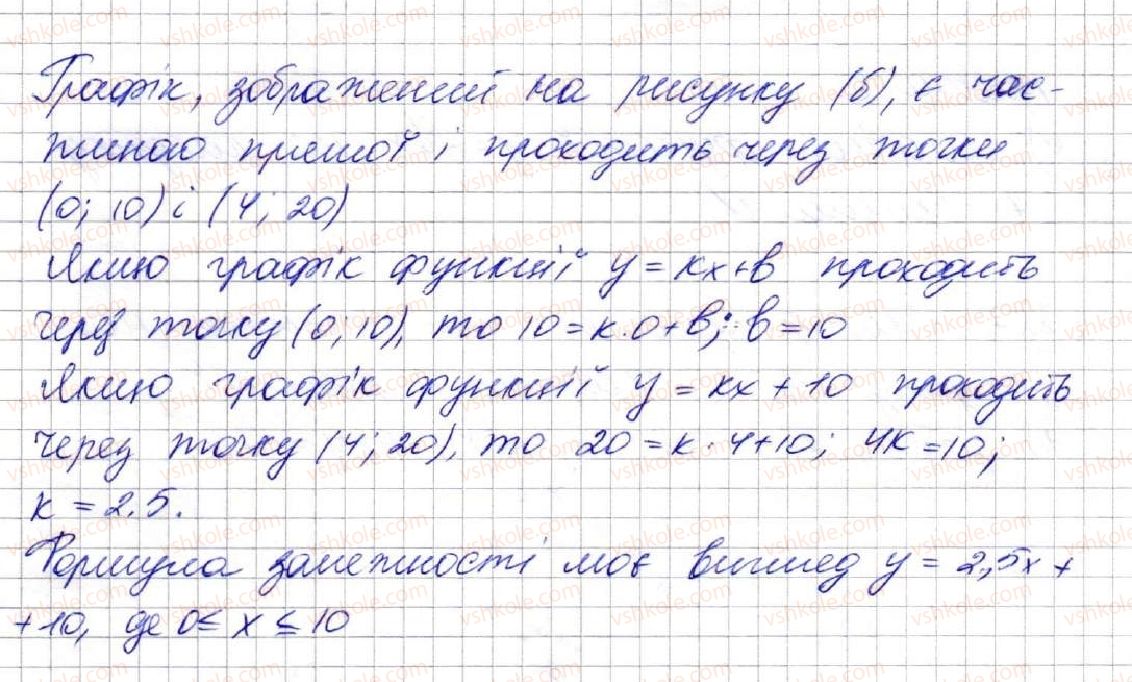 Графік, зображений на рисунку (б), є час-
тиною прямої і проходить через точки
(0; 10) і (4; 20)
Якщо графік функції y = kx + b проходить
через точку (0; 10), то 10 = k · 0 + b; b = 10
Якщо графік функції y = kx + 10 проходить
через точку (4; 20), то 20 = k · 4 + 10; 4k = 10;
k = 2,5.
Формула залежності має вигляд y = 2,5x +
+ 10, де 0 ≤ x ≤ 10
vshkole.com